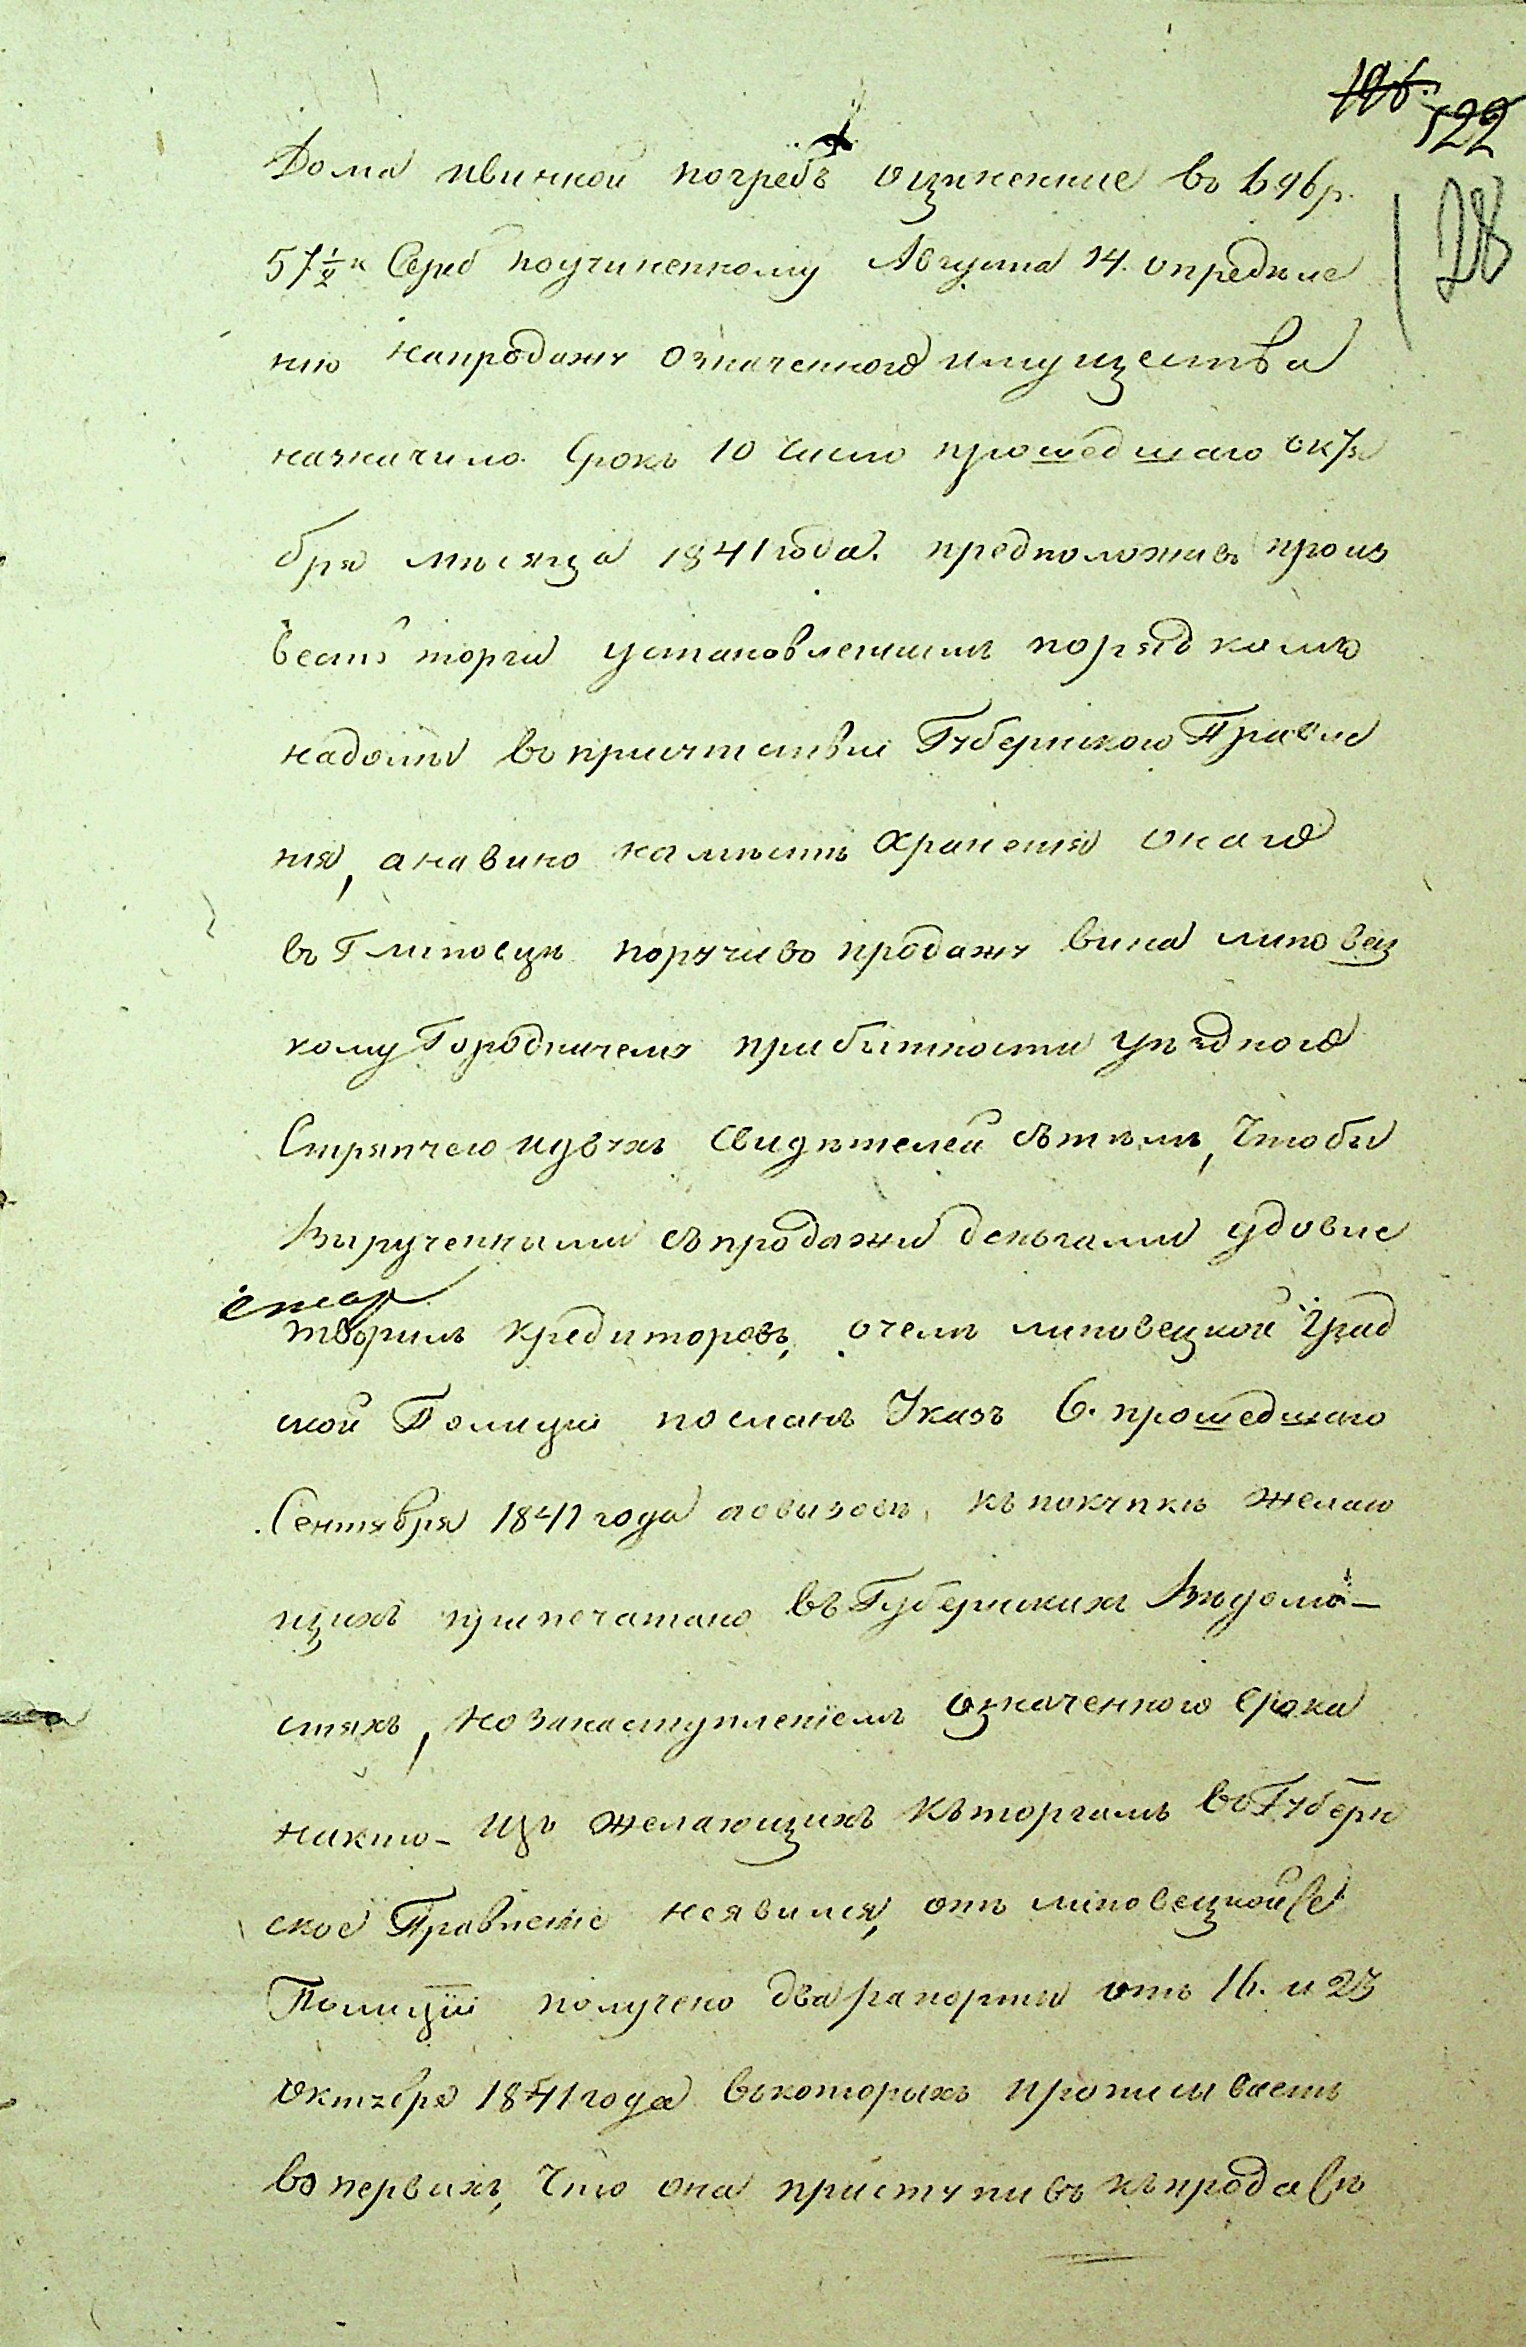 122
28
Дома ивинной погребъ оцѣненные въ
57½ к Сереб поучиненному Августа 14. опредѣле
нію напродажу означенного имущества
назначило Срокъ 10 число прошедшаго октя
бря мѣсяца 1841 года. предположивъ произ
весть торги установленнымъ порядкомъ
надомы въ присутствіи Губернского Правле
нія, анавино намѣстѣ храненія онаго
въ Г Липовцѣ поручивъ продажу вина липовец
кому Городничему прибытности уѣздного
Стряпчего идвухъ свидѣтелей сътѣмъ, Чтобы
вырученными съпродажи деньгами удовле
творилъ кредиторовъ, очемъ липовецкой град
ской Полиціи посланъ Указъ 6. прошедшаго
Сентября 1841 года аовызовѣ къ покупкѣ желаю
щихъ припечатано въ Губернскихъ Вѣдомо-
стяхъ, но занаступленіемъ означенного срока
никто- изъ желающихъ къторгамъ въ Губерн
ское Правленіе неявился, отъ липовецкой
Полиціи получено два рапорты отъ 16. и 23
октября 1841 года вкоторыхъ прописываетъ
во первыхъ, Что она приступивъ къпродажѣ